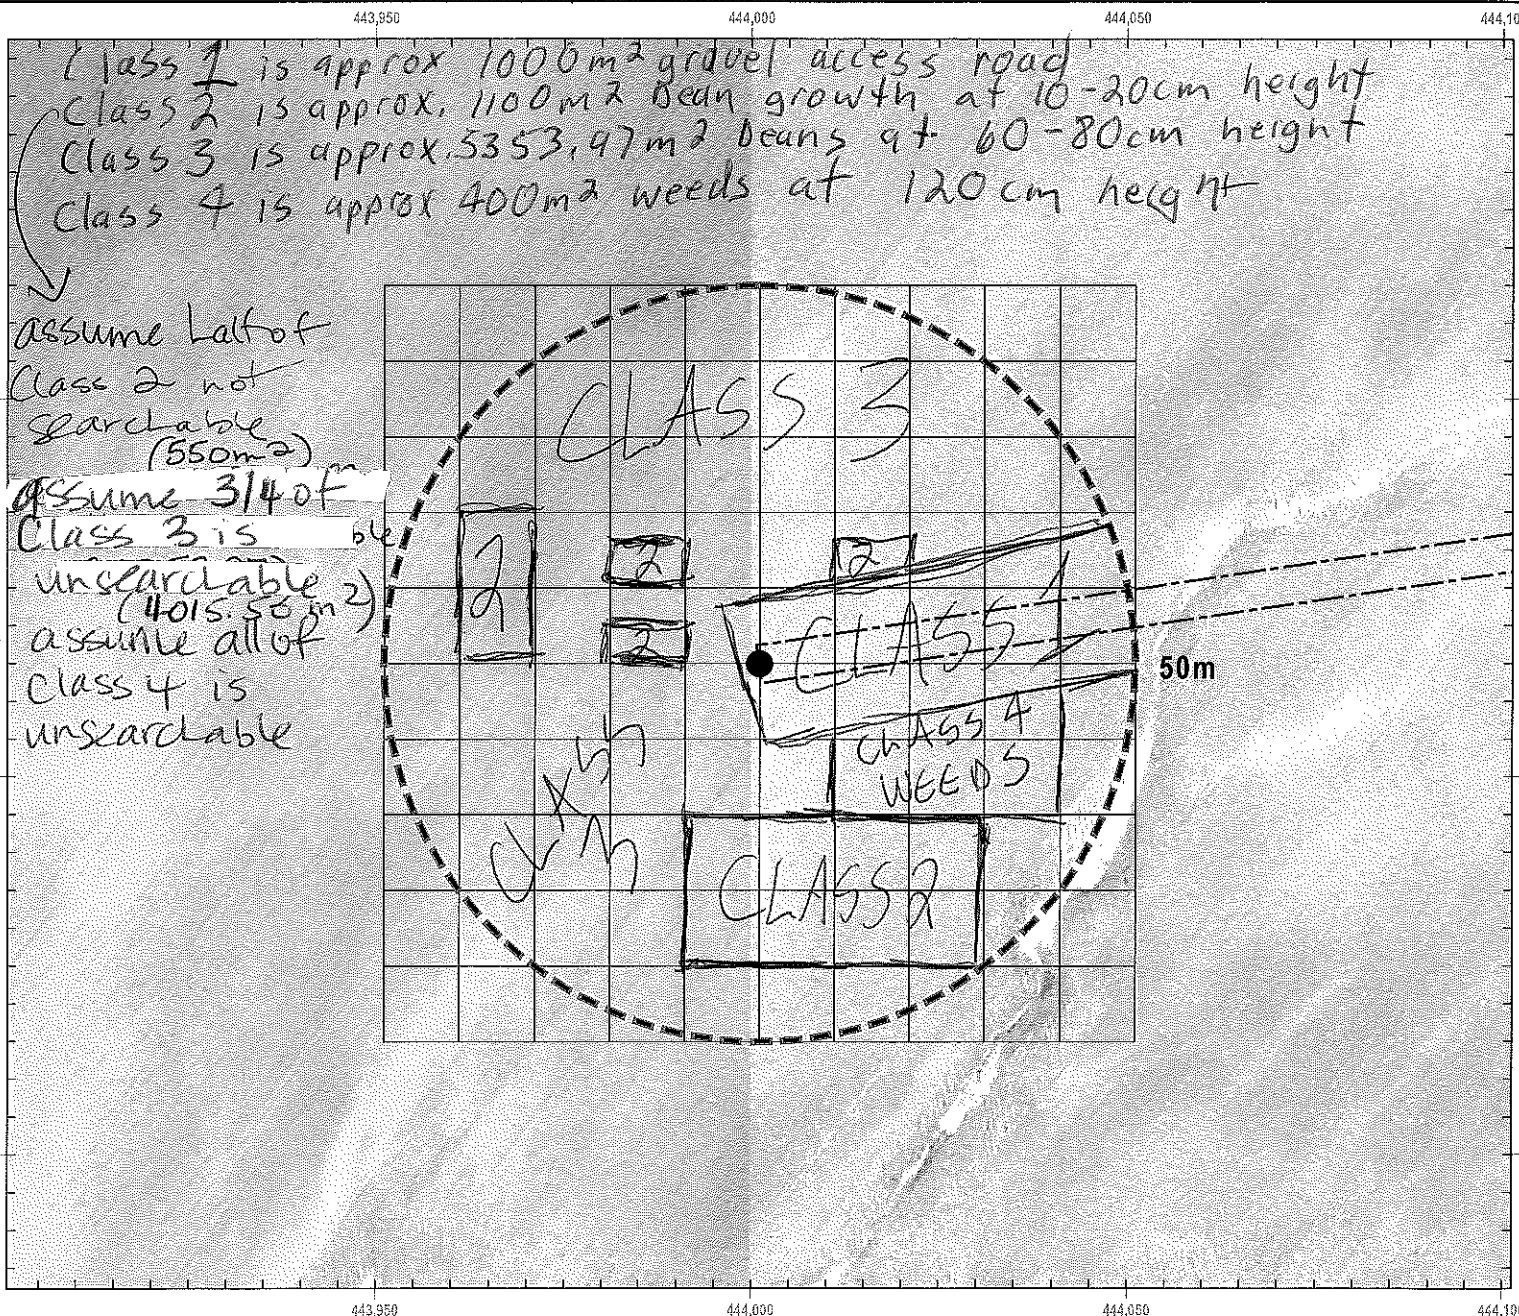 443,950 444,000 444,050 444,10
Class 1 is approx 1000m² gravel access road
Class 2 is approx. 1100m² bean growth at 10-20cm height
Class 3 is approx. 5353.97m² beans at 60-80cm height
Class 4 is approx 400m² weeds at 120cm height
assume half of
Class 2 not
searchable
(550m²)
assume 3/4 of
Class 3 is ble
unsearchable
(4015.50 m²)
assume all of
Class 4 is
unsearchable
CLASS 3
2
2
2
2
CLASS 1
50m
CLASS 4
WEEDS
CLASS
3
CLASS 2
443,950 444,000 444,050 444,10